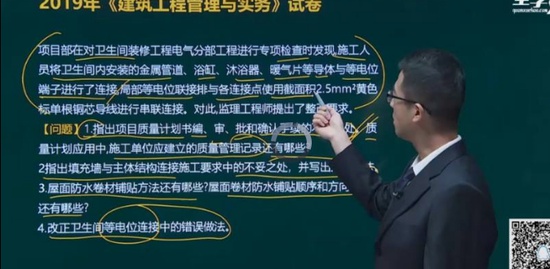 2019年《建筑工程管理与实务》试卷
项目部在对卫生间装修工程电气分部工程进行专项检查时发现,施工人
员将卫生间内安装的金属管道、浴缸、沐浴器、暖气片等导体与等电位
端子进行了连接,局部等电位联接排与各连接点使用截面积2.5mm²黄色
标单根铜芯导线进行串联连接。对此,监理工程师提出了整改要求。
【问题】1.指出项目质量计划书编、审、批和确认手续的 处。质
量计划应用中,施工单位应建立的质量管理记录还有哪些
2指出填充墙与主体结构连接施工要求中的不妥之处,并写出
3.屋面防水卷材铺贴方法还有哪些?屋面卷材防水铺贴顺序和方向
还有哪些?
4.改正卫生间等电位连接中的错误做法。